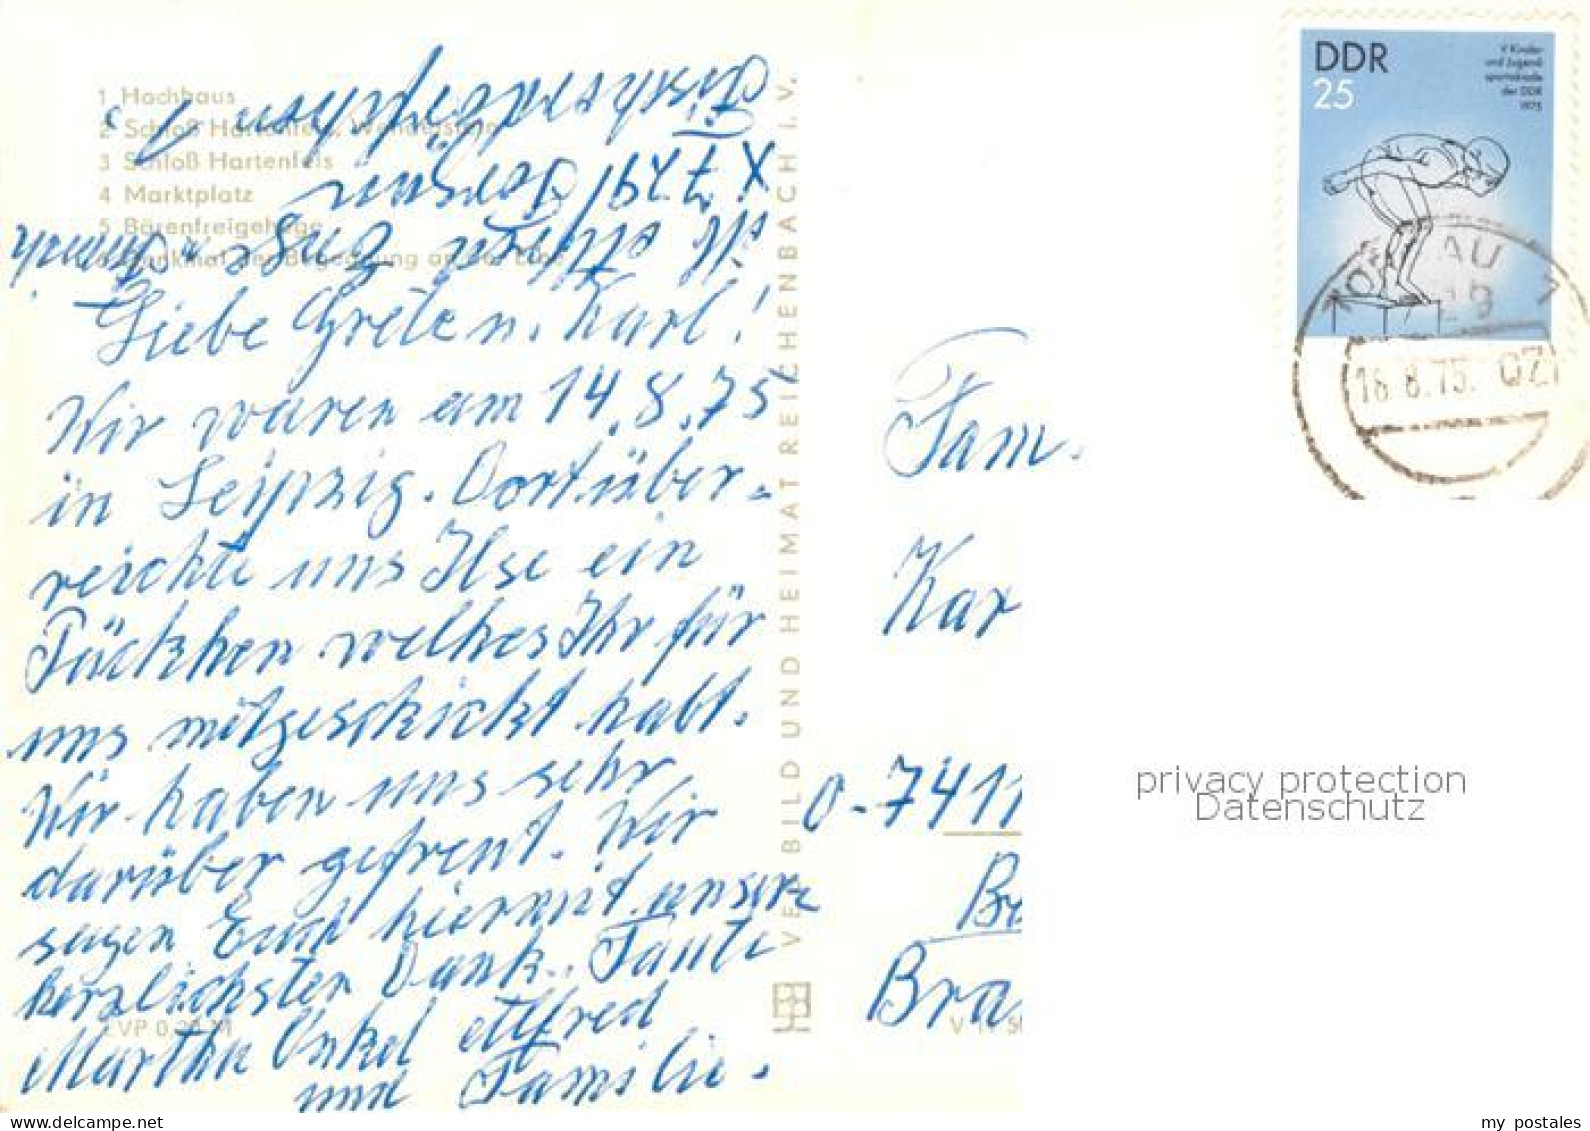 1 Hochhaus
2 Schloß Hartenfels, Wendelstein
3 Schloß Hartenfels
4 Marktplatz
5 Bärenfreigehege
6 Denkmal der Begegnung an der Elbe
X 7291
Liebe Greten. Karl!
Wir waren am 14.8.75
in Leipzig. Dort über-
reichte uns Ilse ein
Päckhen welhes Ihr für
uns mitgeschickt habt.
Wir haben uns sehr
darüber gefreut. Wir
sagen Euch hiermit unsere
herzlichsten Dank. Tante
Martha Onkel Alfred
und Familie.
EVP 0,20 M
VEB BILD UND HEIMAT REICHENBACH i. V.
DDR
25
V Kinder-
und Jugend
spartakiade
der DDR
1975
TORGAU 1
729
18.8.75.
Fam.
Kar
0-7411
Br
Bra
privacy protection
Datenschutz
my postales